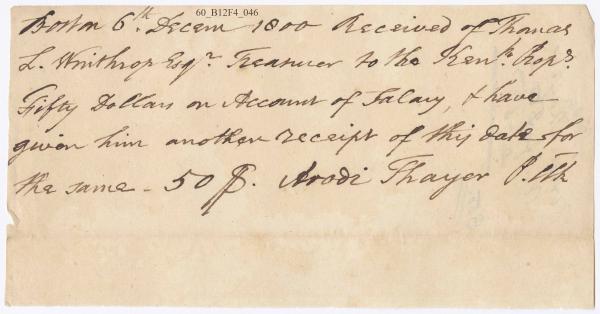 60_B12F4_046
Boston 6th. Decem 1800 Received of Thomas
L. Winthrop Esqr. Treasurer to the Kenk. Props.
Fifty Dollars on Account of Salary, & have
given him another receipt of this date for
the same - 50 $. Arodi Thayer P. Clk